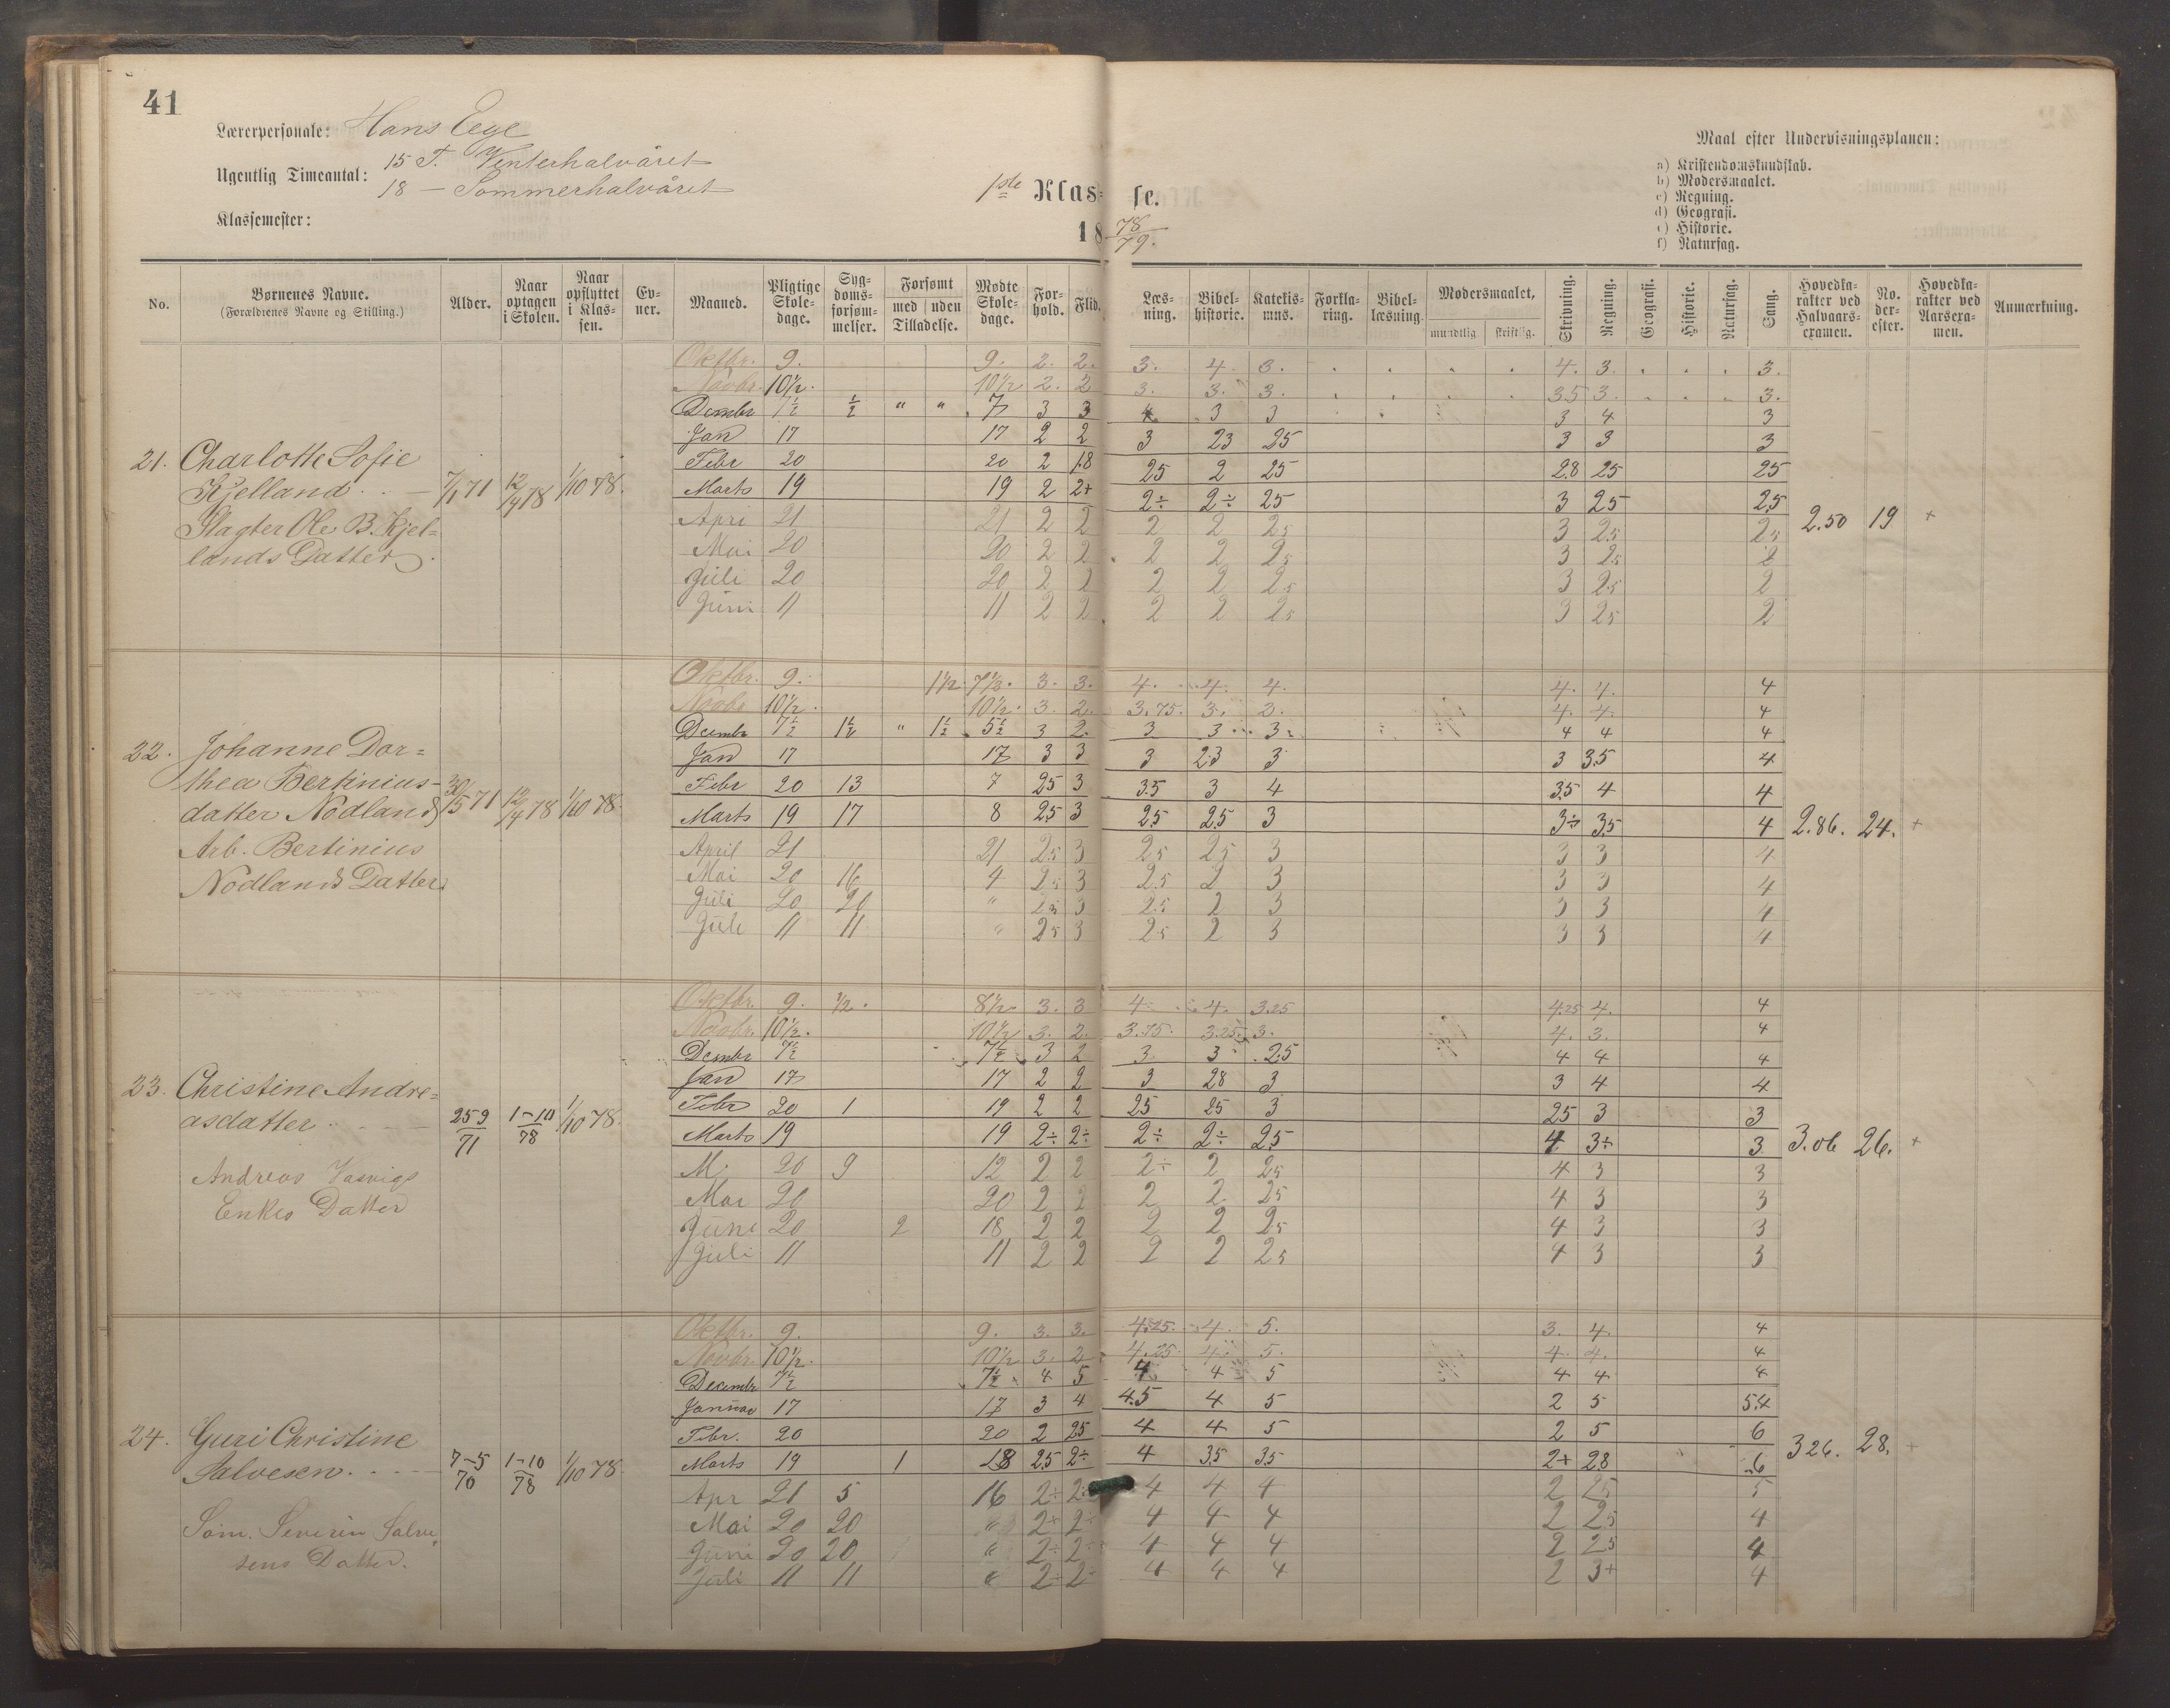 41
Lærerpersonale: Hans Eege
Ugentlig Timeantal: 15 T. Vinterhalvåret
18 — Sommerhalvåret
Klassemester:
1ste Klas= se.
18 78/79.
Maal efter Undervisningsplanen:
a) Kristendomskundskab.
b) Modersmaalet.
c) Regning.
d) Geografi.
e) Historie.
f) Naturfag.
No. Børnenes Navne. (Forældrenes Navne og Stilling.) Alder. Naar optagen i Skolen. Naar opflyttet i Klas- sen. Ev- ner. Maaned. Pligtige Skole- dage. Syg- doms- forsøm- melser. Forsømt med uden Tilladelse. Mødte Skole- dage. For- hold. Flid. Læs- ning. Bibel- historie. Katekis- mus. Forkla- ring. Bibel- læsning. Modersmaalet, mundtlig skriftlig. Skrivning. Regning. Geografi. Historie. Naturfag. Sang. Hovedka- rakter ved Halvaars- examen. No. der- efter. Hovedka- rakter ved Aarsexa- men. Anmærkning.
Oktbr. 9. 9. 2. 2. 3. 4. 3. 4. 3. 3.
Novbr. 10½. 10½ 2. 2 3. 3. 3. 3.5 3. 3.
Dcembr 7½ ½ " " 7 3 3 4 3 3 3 4 3
Jan 17 17 2 2 3 23 25 3 3 3
Febr 20 20 2 1.8 25 2 25 2.8 25 25
Marts 19 19 2 2+ 2÷ 2÷ 25 3 25 25
Apri 21 21 2 2 2 2 25 3 25 25
Mai 20 20 2 2 2 2 25 3 25 2
Juli 20 20 2 2 2 2 25 3 25 2
Juni 11 11 2 2 2 2 25 3 25 2
21. Charlotte Sofie
Kjelland . . — 7/1 71 12/4 78 1/10 78.
Slagter Ole B. Kjel=
lands Datter.
2.50 19 +
Oktbr. 9. 1½ 7½. 3. 3. 4. 4. 4. 4. 4. 4
Novbr 10½. 10½. 3. 2. 3.75. 3. 3. 4. 4. 4
Dcembr 7½ 1½ " 1½ 5½ 3 2. 3 3 3 4 4 4
Jan 17 17 3 3 3 23 3 3 35 4
Febr 20 13 7 25 3 35 3 4 35 4 4
Marts 19 17 8 25 3 25 25 3 3÷ 35 4
April 21 21 25 3 25 25 3 3 3 4
Mai 20 16 4 25 3 25 2 3 3 3 4
Juli 20 20 " 25 3 25 2 3 3 3 4
Juli 11 11 " 25 3 25 2 3 3 3 4
22. Johanne Dor=
thea Bertinius-
datter Nodland 30/5 71 12/4 78 1/10 78.
Arb. Bertinius
Nodlands Datter
2.86. 24. +
Oktbr. 9. ½. 8½ 3. 3 4 4. 3.25 4.25 4. 4
Novbr. 10½. 10½ 3. 2. 3.75. 3.25. 3. 4. 3. 4
Dcembr 7½ 7½ 3 2 3 3 2.5 4 4 4
Jan 17 17 2 2 3 28 3 3 4 4
Febr 20 1 19 2 2 25 25 3 25 3 3
Marts 19 19 2÷ 2÷ 2÷ 2÷ 25 4 3÷ 3
20 9 12 2 2 2÷ 2 25 4 3 3
Mai 20 20 2 2 2 2 25 4 3 3
Juni 20 2 18 2 2 2 2 25 4 3 3
Juli 11 11 2 2 2 2 25 4 3 3
23. Christine Andre=
asdatter . . . — 25 9/71 1-10/78 1/10 78.
Andreas
Enkes Datter
3.06 26. +
Oktbr. 9. 9. 3. 3. 4.25. 4. 5. 3. 4. 4
Novbr. 10½. 10½ 3. 2 4.25. 4. 5. 4. 4. 4
Decembr 7½ 7½ 4 5 4 4 5 4 4 4
Januar 17 17 3 4 4.5 4 5 2 5 5.4
Febr. 20 20 2 25 4 4 5 2 5 6
Marts 19 1 18 25 2÷ 4 35 35 2+ 28 6
Apr 21 5 16 2÷ 2÷ 4 4 4 2 25 5
Mai 20 20 " 2+ 2÷ 4 4 4 2 25 4
Juni 20 20 " 2÷ 2÷ 4 4 4 2 25 4
Juli 11 11 " 2÷ 2÷ 4 4 4 2 3+ 4
24. Guri Christine
Salvesen. . . . 7-5/70 1-10/78 1/10 78
Søm. Severin Salve
sens Datter.
326. 28. +